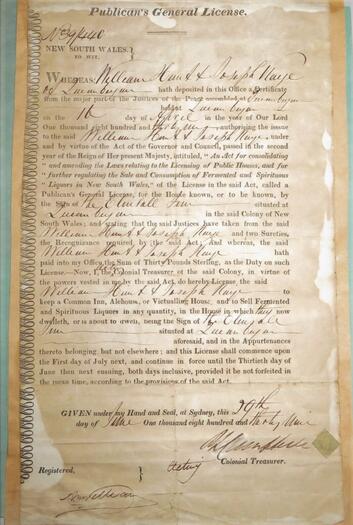 Publican's General License.
No 39/440
NEW SOUTH WALES, }
TO WIT. }
WHEREAS William Hunt & Joseph Kaye
of Queanbeyan hath deposited in this Office a Certificate
from the major part of the Justices of the Peace assembled at Queanbeyan
Queanbeyan
on the 16 day of April in the year of Our Lord
One thousand eight hundred and thirty nine authorising the issue
to the said William Hunt & Joseph Kaye under
and by virtue of the Act of the Governor and Council, passed in the second
year of the Reign of her present Majesty, intituled, "An Act for consolidating
"and amending the Laws relating to the Licensing of Public Houses, and for
"further regulating the Sale and Consumption of Fermented and Spirituous
"Liquors in New South Wales," of the License in the said Act, called a
Publican's General License, for the House known, or to be known, by
the Sign of The Inn situated at
Queanbeyan in the said Colony of New
South Wales; and stating that the said Justices have taken from the said
William Hunt & Joseph Kaye and two Sureties,
the Recognizance required by the said Act; And whereas, the said
William Hunt & Joseph Kaye hath
paid into my Office the Sum of Thirty Pounds Sterling, as the Duty on such
License.—Now, I, the Colonial Treasurer of the said Colony, in virtue of
the powers vested in me by the said Act, do hereby License, the said
William Hunt & Joseph Kaye to
keep a Common Inn, Alehouse, or Victualling House; and to Sell Fermented
and Spirituous Liquors in any quantity, in the House in which they now
dwelleth, or is about to dwell, being the Sign of The
Inn situated at Queanbeyan
aforesaid, and in the Appurtenances
thereto belonging, but not elsewhere; and this License shall commence upon
the First day of July next, and continue in force until the Thirtieth day of
June then next ensuing, both days inclusive, provided it be not forfeited in
the mean time, according to the provisions of the said Act.
GIVEN under my Hand and Seal, at Sydney, this 29th
day of June One thousand eight hundred and thirty nine
Colonial Treasurer.
Acting
Registered, }